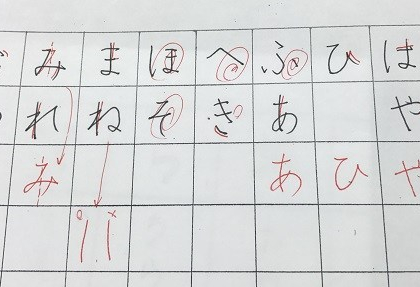 み ま ほ へ ふ ひ は
れ ね そ き あ や
み あ ひ や